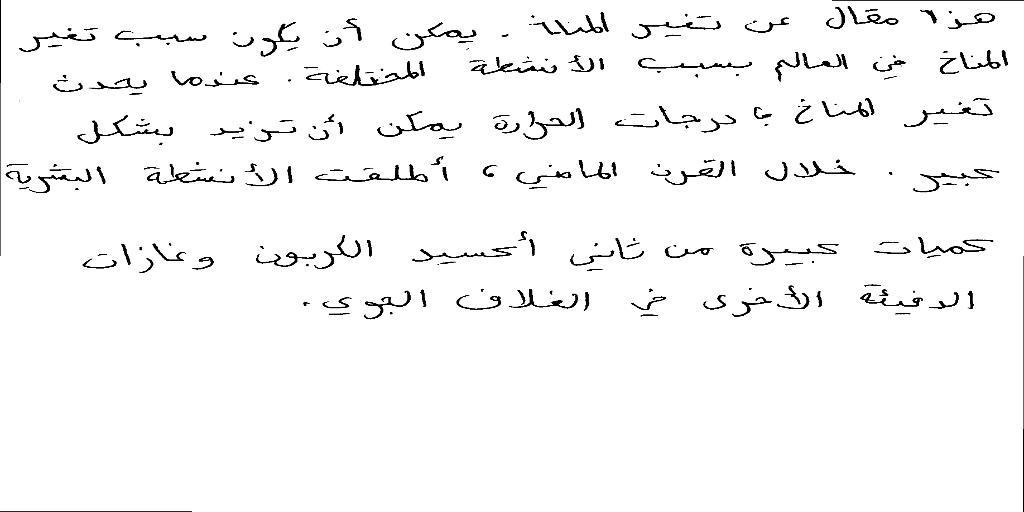 هذا مقال عن تغير المناخ . يمكن أن يكون سبب تغير
المناخ في العالم بسبب الأنشطة المختلفة . عندما يحدث
تغير المناخ ، درجات الحرارة يمكن أن تزيد بشكل
كبير . خلال القرن الماضي ، أطلقت الأنشطة البشرية
كميات كبيرة من ثاني أكسيد الكربون وغازات
الدفيئة الأخرى في الغلاف الجوي .